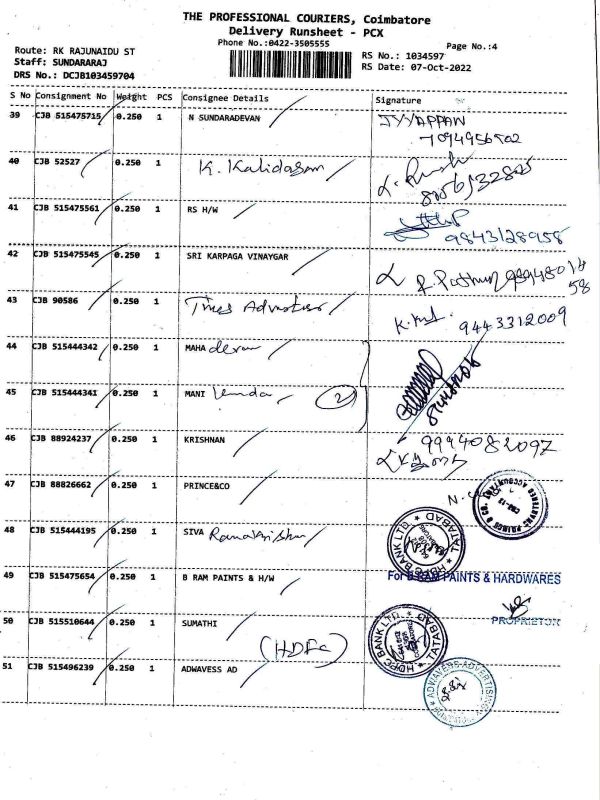 THE PROFESSIONAL COURIERS, Coimbatore
Delivery Runsheet - PCX
Phone No.:0422-3505555
Page No.:4
Route: RK RAJUNAIDU ST
Staff: SUNDARARAJ
DRS No.: DCJB103459704
RS No.: 1034597
RS Date: 07-Oct-2022
S No Consignment No Weight PCS Consignee Details Signature
39 CJB 515475715 0.250 1 N SUNDARADEVAN IYYAPPAN
7094956502
40 CJB 52527 0.250 1 K. Kalidasan
41 CJB 515475561 0.250 1 RS H/W
9843128958
42 CJB 515475545 0.250 1 SRI KARPAGA VINAYGAR
43 CJB 90586 0.250 1 9443312009
44 CJB 515444342 0.250 1 MAHA devan
45 CJB 515444341 0.250 1 MANI 2
46 CJB 88924237 0.250 1 KRISHNAN 9994082097
47 CJB 88826662 0.250 1 PRINCE&CO
48 CJB 515444195 0.250 1 SIVA Ramakrishnan
HDFC BANK LTD. TATABAD
49 CJB 515475654 0.250 1 B RAM PAINTS & H/W For B RAM PAINTS & HARDWARES
PROPRIETOR
50 CJB 515510644 0.250 1 SUMATHI
(HDFC)
HDFC BANK LTD. TATABAD
51 CJB 515496239 0.250 1 ADWAVESS AD
ADWAVESS ADVERTISING